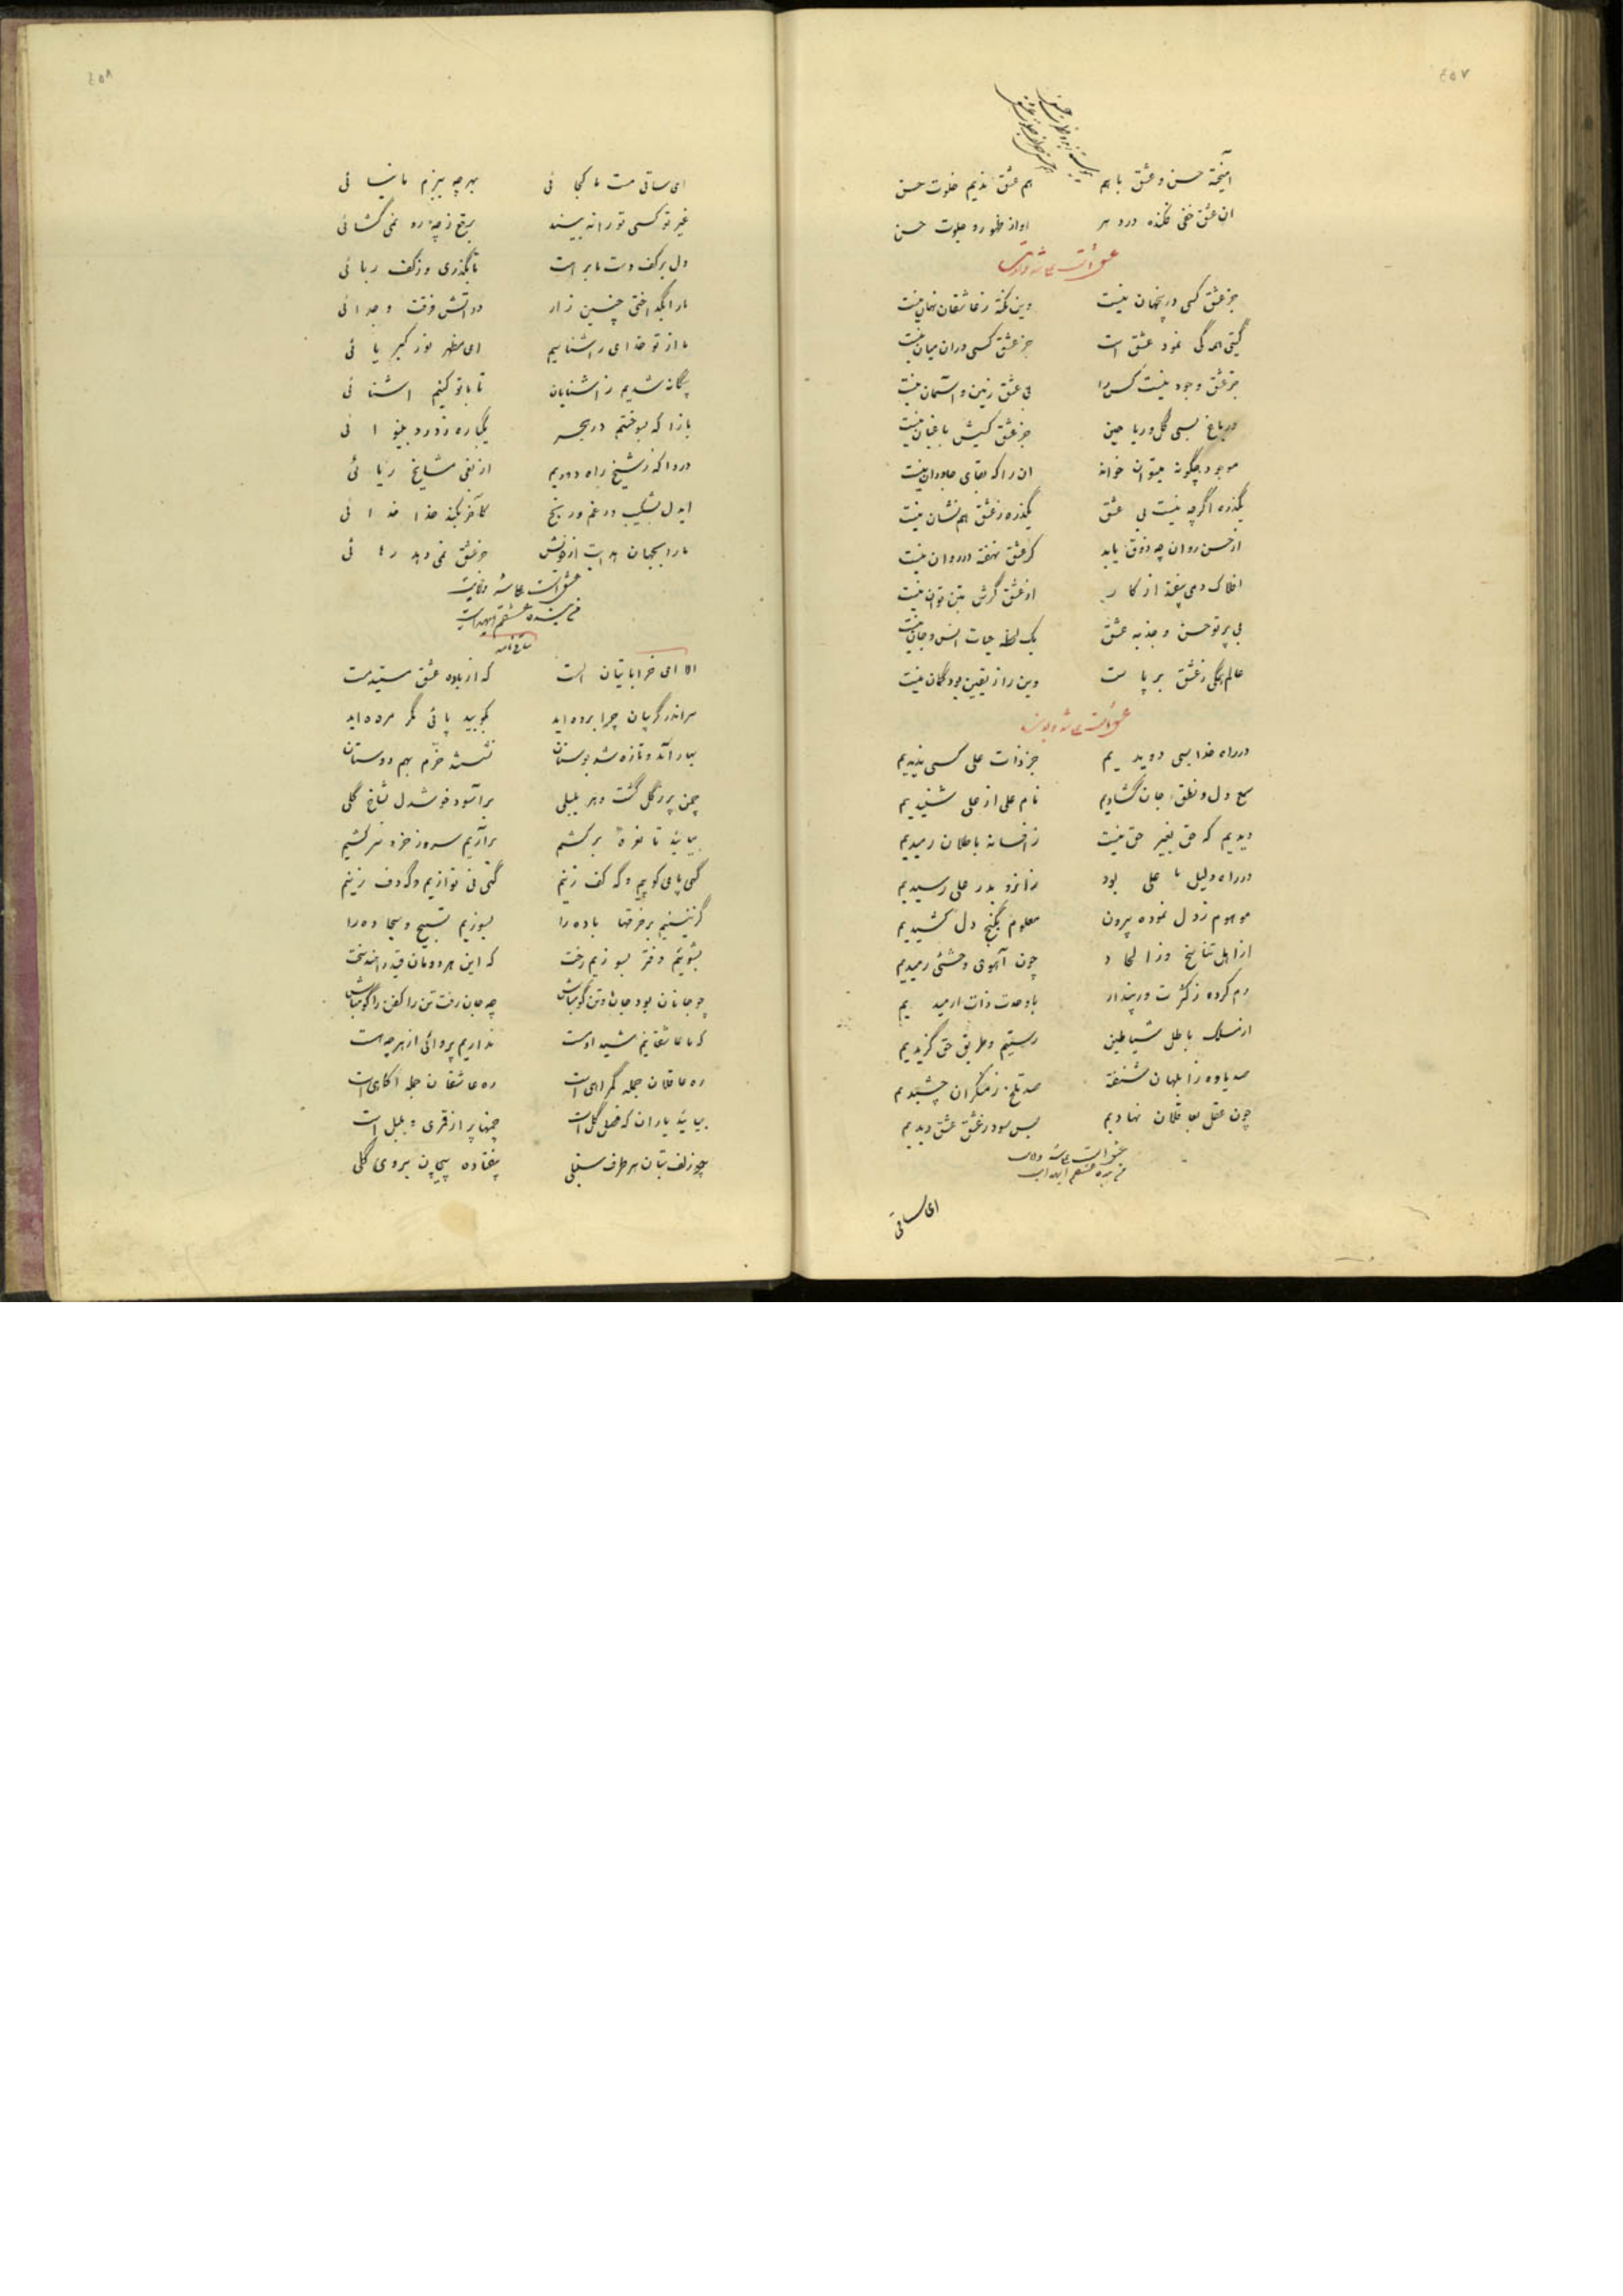 ٤٥٧
آمیخته حسن و عشق با هم هم عشق ندیم خلوت حسن
ان عشق خفی فکنده در دهر اواز ظهور و جلوت حسن
جز عشق کسی درینجهان نیست وین نکته ز عاشقان نهان نیست
گیتی همه گی نمود عشق است جز عشق کسی دران میان نیست
جز عشق وجود نیست کس را بی عشق زمین و آسمان نیست
در باغ بسی گل و ریاحین جز عشق کسیش باغبان نیست
موجود چگونه میتوان خواند ان را که بقای جاودان نیست
بگذر ه اگرچه نیست بی عشق یکذره ز عشق هم نشان نیست
از حسن روان چه ذوق یابد گر عشق نهفته در روان نیست
افلاک دمی بیفتد از کار از عشق گرش بتن توان نیست
بی پرتو حسن و جذبه عشق یک لحظه حیات انس و جان نیست
عالم همگی ز عشق بر پا ست وین راز یقین بود گمان نیست
در راه خدا بسی دوید یم جز ذات علی کسی ندیدیم
سمع دل و نطق جان گشادیم نام علی از علی شنیدیم
دیدیم که حق بغیر حق نیست ز افسانه باطلان رمیدیم
در راه دلیل ما علی بود زانرو بدر علی رسیدیم
موهوم ز دل نموده بیرون معلوم بگنج دل کشیدیم
از اهل تناسخ و ز الحاد چون آهوی وحشئی رمیدیم
رم کرده ز کثرت و ز پندار با وحدت ذات ارمید یم
از مسلک باطل شیاطین رستیم و طریق حق گزیدیم
صد یاوه ز ابلهان شنفته صد تلخ ز منکران چشیدیم
چون عقل بعاقلان نهادیم بس سود ز عشق عشق دیدیم
ای ساقی
٤٥٨
ای ساقی مست ما کجا ئی بهر چه ببزم ما نیا ئی
غیر تو کسی تو را نه بیند برقع ز چه رو نمی گشا ئی
دل بر کف دست ما بر است تا بگذری و ز کف ربا ئی
ما را بگداختی چنین زار در اتش فرقت و جدا ئی
ما از تو خدای را شناسیم ای مظهر نور کبر یا ئی
بیگانه شدیم ز اشنایان تا با تو کنیم اشنا ئی
بازا که بسوختم در هجر یکباره ز درد بینو ا ئی
دردا که ز شیخ راه دیدیم از نفی مشایخ ریا ئی
ایدل بشکیب در غم و رنج کاخر بکند خدا خد ا ئی
ما را بجهان هدایت از خویش جز عشق نمی دهد رها ئی
ساقی نامه
الا ای خراباتیان الست که از باده عشق هستید مست
سر اندر گریبان چرا برده اید بکوبید پائی مگر مرده اید
بهار آمد و تازه شد بوستان نشستند خرم بهم دوستان
چمن پر ز گل گشت و هر بلبلی بر آسود خوشدل بشاخ گلی
بیائید تا نعره بر کشیم بر آریم سر وز خرد سر کشیم
گهی پا می کوبیم و گه کف زنیم گهی نی نوازیم و گه دف زنیم
گزینیم بر خرقها باده را بسوزیم تسبیح و سجاده را
بشوئیم دفتر بسوزیم رخت که این هر دومان قید راهند سخت
چو جانان بود جان و تن گو مباش چه جان رفت تن را کفن را گو مباش
که ما عاشقانیم شیدا و مست نداریم پروائی از هر چه هست
ره عاقلان جمله گمراهی است ره عاشقان جمله اگاهی است
بیائید یاران که فصل گل است چمنها پر از قمری و بلبل است
چو زلف بتان هر طرف سنبلی بیفتاده پیچان بروی گلی